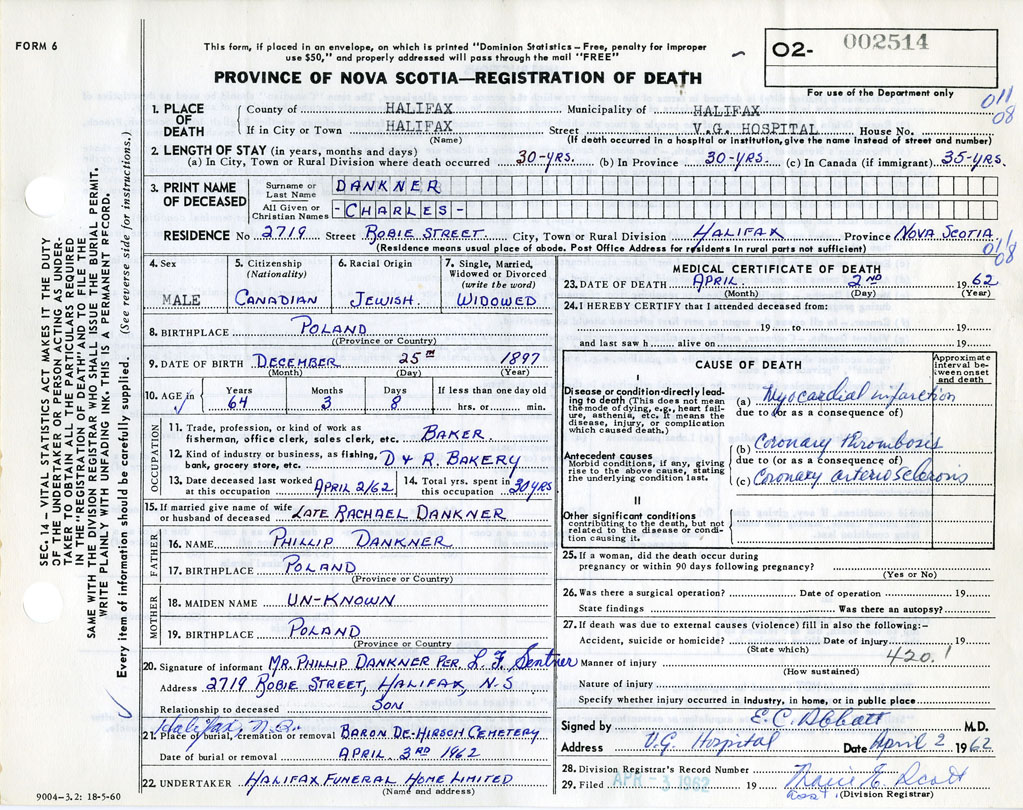 FORM 6
This form, if placed in an envelope, on which is printed "Dominion Statistics – Free, penalty for improper
use $50," and properly addressed will pass through the mail "FREE"
PROVINCE OF NOVA SCOTIA—REGISTRATION OF DEATH
O2- 002514
For use of the Department only
011
08
1. PLACE OF DEATH
County of HALIFAX Municipality of HALIFAX
If in City or Town HALIFAX Street V.G. HOSPITAL House No.
(Name) (If death occurred in a hospital or institution, give the name instead of street and number)
2. LENGTH OF STAY (in years, months and days)
(a) In City, Town or Rural Division where death occurred 30-YRS. (b) In Province 30-YRS. (c) In Canada (if immigrant) 35-YRS.
3. PRINT NAME OF DECEASED
Surname or Last Name DANKNER
All Given or Christian Names -CHARLES-
RESIDENCE No 2719 Street ROBIE STREET City, Town or Rural Division HALIFAX Province NOVA SCOTIA
(Residence means usual place of abode. Post Office Address for residents in rural parts not sufficient)
011
08
4. Sex MALE
5. Citizenship (Nationality) CANADIAN
6. Racial Origin JEWISH
7. Single, Married, Widowed or Divorced (write the word) WIDOWED
8. BIRTHPLACE POLAND
(Province or Country)
9. DATE OF BIRTH DECEMBER 25TH 1897
(Month) (Day) (Year)
10. AGE in Years 64 Months 3 Days 8 If less than one day old hrs. or min.
OCCUPATION
11. Trade, profession, or kind of work as
fisherman, office clerk, sales clerk, etc. BAKER
12. Kind of industry or business, as fishing,
bank, grocery store, etc. D & R. BAKERY
13. Date deceased last worked at this occupation APRIL 2/62 14. Total yrs. spent in this occupation 30 YRS
15. If married give name of wife
or husband of deceased LATE RACHAEL DANKNER
FATHER
16. NAME PHILLIP DANKNER
17. BIRTHPLACE POLAND
(Province or Country)
MOTHER
18. MAIDEN NAME UN-KNOWN
19. BIRTHPLACE POLAND
(Province or Country
20. Signature of informant MR. PHILLIP DANKNER PER L. F. Sentner
Address 2719 ROBIE STREET, HALIFAX, N-S
Relationship to deceased SON
Halifax, N.S.
21. Place of burial, cremation or removal BARON DE-HIRSCH CEMETERY
Date of burial or removal APRIL 3RD 1962
22. UNDERTAKER HALIFAX FUNERAL HOME LIMITED
(Name and address)
9004–3.2: 18-5-60
MEDICAL CERTIFICATE OF DEATH
23. DATE OF DEATH APRIL 2ND 1962
(Month) (Day) (Year)
24. I HEREBY CERTIFY that I attended deceased from:
19 to 19
and last saw h alive on 19
CAUSE OF DEATH
Approximate interval between onset and death
I
Disease or condition directly leading to death (This does not mean the mode of dying, e.g., heart failure, asthenia, etc. It means the disease, injury, or complication which caused death.)
(a) Myocardial infarction
due to (or as a consequence of)
Antecedent causes
Morbid conditions, if any, giving rise to the above cause, stating the underlying condition last.
(b) Coronary thrombosis
due to (or as a consequence of)
(c) Coronary arteriosclerosis
II
Other significant conditions
contributing to the death, but not related to the disease or condition causing it.
25. If a woman, did the death occur during
pregnancy or within 90 days following pregnancy?
(Yes or No)
26. Was there a surgical operation? Date of operation 19
State findings Was there an autopsy?
27. If death was due to external causes (violence) fill in also the following:-
Accident, suicide or homicide? Date of injury 19
(State which)
420.1
Manner of injury
(How sustained)
Nature of injury
Specify whether injury occurred in industry, in home, or in public place
Signed by E.C. Abbott M.D.
Address V.G. Hospital Date April 2 1962
28. Division Registrar's Record Number
29. Filed APR - 3 1962 19 Marie E. Scott
(Division Registrar)
SEC. 14 – VITAL STATISTICS ACT MAKES IT THE DUTY
OF THE UNDERTAKER OR PERSON ACTING AS UNDER-
TAKER TO OBTAIN ALL THE PARTICULARS REQUIRED
IN THE "REGISTRATION OF DEATH" AND TO FILE THE
SAME WITH THE DIVISION REGISTRAR WHO SHALL ISSUE THE BURIAL PERMIT.
WRITE PLAINLY WITH UNFADING INK. THIS IS A PERMANENT RECORD.
Every item of information should be carefully supplied. (See reverse side for instructions.)